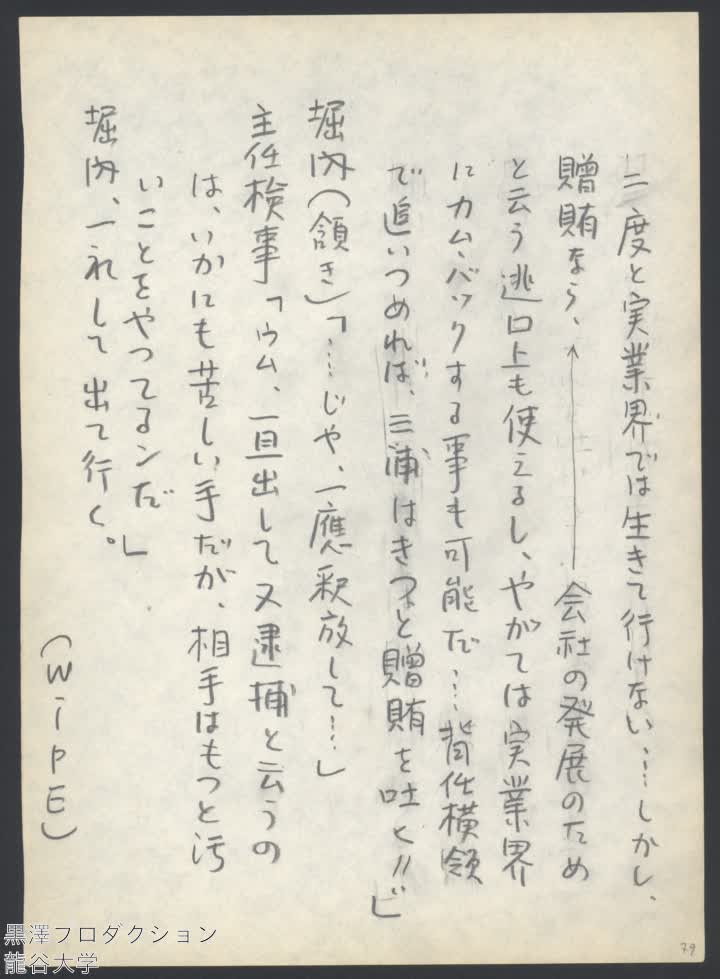 二度と実業界では生きて行けない……しかし、
贈賄なら、会社の発展のため
と云う逃口上も使えるし、やがては実業界
にカム・バックする事も可能だ……背任横領
で追いつめれば、三浦はきつと贈賄を吐く!!」
堀内(頷き)「……じや、一應釈放して……」
主任検事「ウム、一旦出して又逮捕と云うの
は、いかにも苦しい手だが、相手はもつと汚
いことをやつてるンだ」
堀内、一礼して出て行く。
(WIPE)
79
黒澤プロダクション
龍谷大学